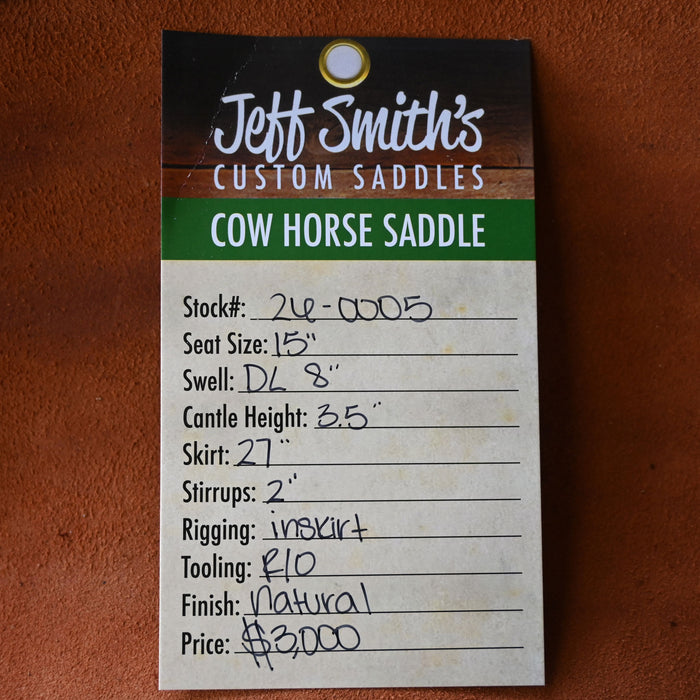 Jeff Smith's
CUSTOM SADDLES
COW HORSE SADDLE
Stock#: 26-0005
Seat Size: 15"
Swell: DL 8"
Cantle Height: 3.5"
Skirt: 27"
Stirrups: 2"
Rigging: inskirt
Tooling: R/O
Finish: natural
Price: $3,000